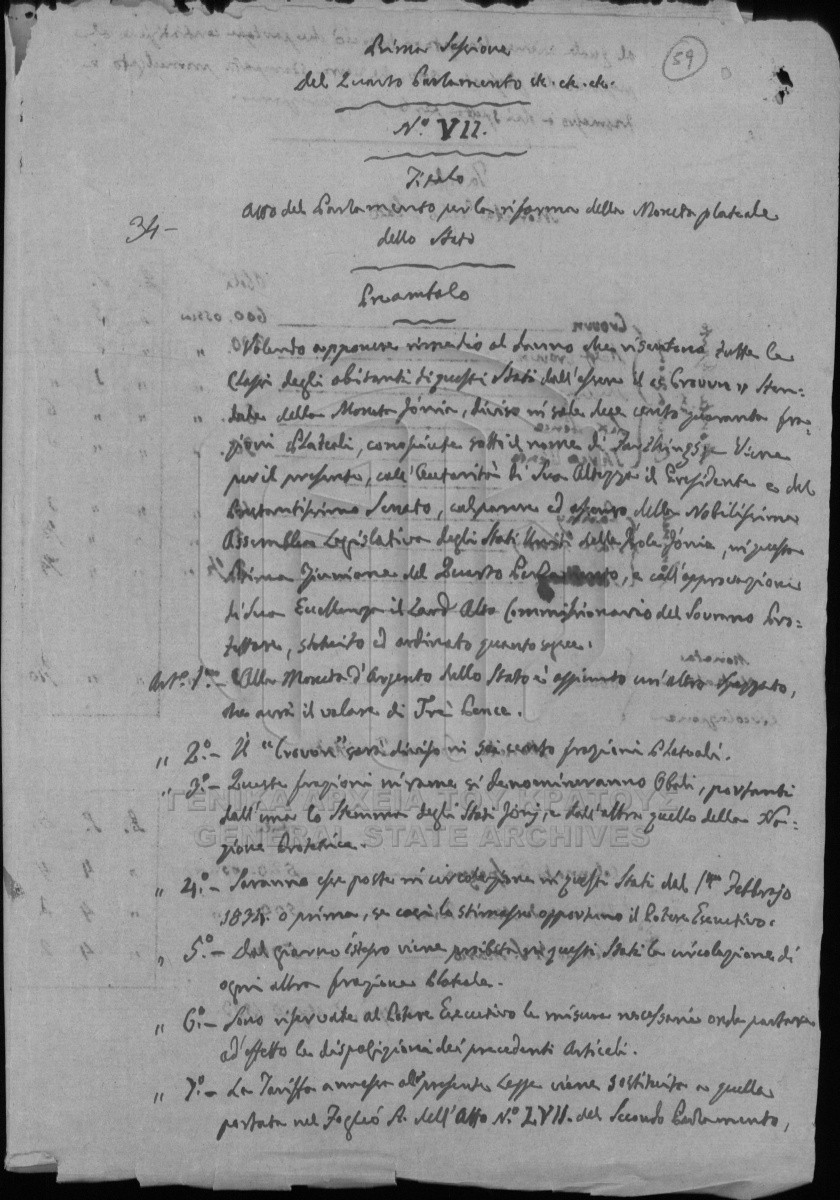 59
Prima Sessione
Del Quarto Parlamento etc. etc. etc.
N.º VII.
Titolo
34 -
Atto del Parlamento per la riforma della Moneta plateale
dello Stato
Preambolo
Volendo apponere rimedio al danno che risentono tutte le
Classi degli abitanti di questi Stati dall'essere il "Crown" Sten-
dale della Moneta Jónia, diviso in sole due cento quaranta fra-
zioni Plateali, conosciute sotto il nome di Farthings, Viene
per il presente, coll'Autorità di Sua Altezza il Presidente e del
Prestantissimo Senato, col parere ed assenso della Nobilissima
Assemblea Legislativa degli Stati Uniti delle Isole Jónie, in questa
Prima Sessione del Quarto Parlamento, e coll'approvazione
di Sua Eccellenza il Lord Alto Commissionario del Sovrano Pro-
tettore, statuito ed ordinato quanto segue.
Art.º 1.mo - Alla Moneta d'Argento dello Stato è aggiunto un'altro spezzato,
che avrà il valore di Trè Pence.
" 2.º - Il "Crown" sarà diviso in sei cento frazioni Plateali.
" 3.º - Queste frazioni in rame si denomineranno Oboli, portanti
dall'una lo Stemma degli Stati Jónj, e dall'altra quello della Na-
zione Protettrice.
" 4.º - Saranno esse poste in circolazione in questi Stati dal 1.mo Febbrajo
1834. o prima, se così lo stimasse opportuno il Potere Esecutivo.
" 5.º - Dal giorno istesso viene proibita in questi Stati la circolazione di
ogni altra frazione Plateale.
" 6.º - Sono riservate al Potere Esecutivo le misure necessarie onde portare
ad effetto le disposizioni dei precedenti Articoli.
" 7.º - La Tariffa annessa alla presente Legge viene sostituita a quella
portata nel Foglio A. dell'Atto N.º LVII. del Secondo Parlamento,
ΓΕΝΙΚΑ ΑΡΧΕΙΑ ΤΟΥ ΚΡΑΤΟΥΣ
GENERAL STATE ARCHIVES